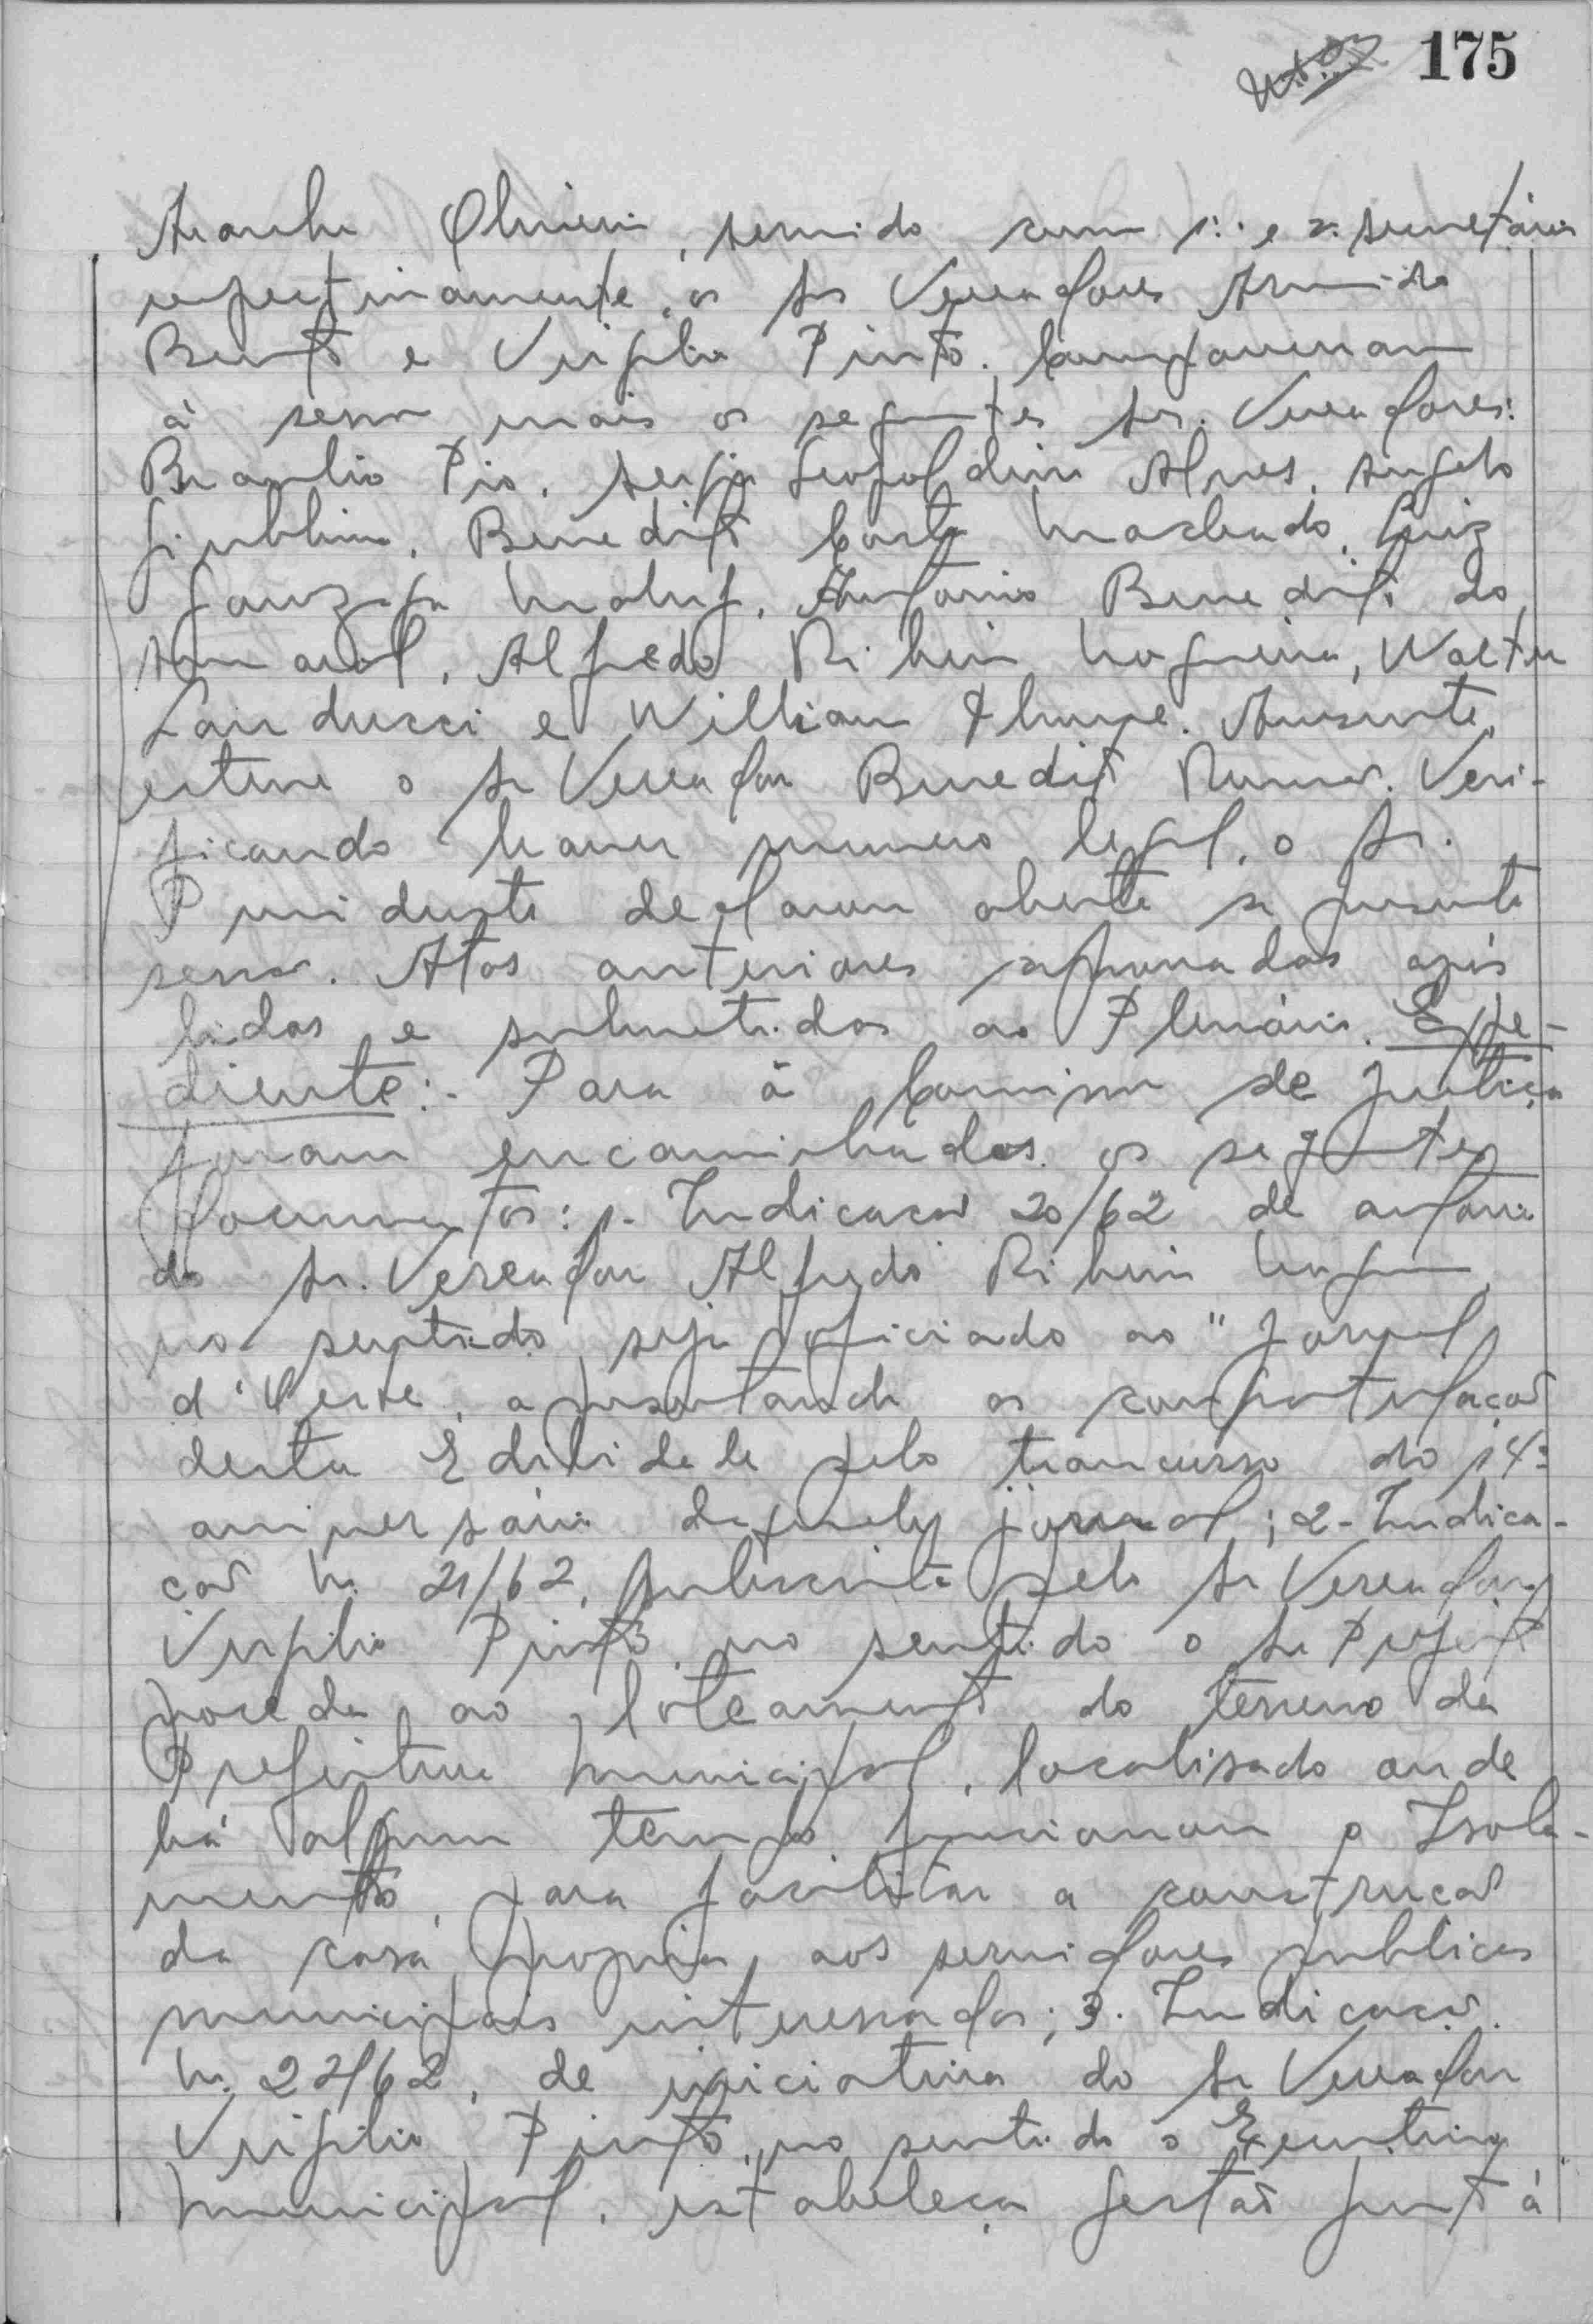 175
Aranha Oliveira, servindo como 1º e 2º secretários
respectivamente, os srs Vereadores Armindo
Bento e Virgilio Pinto. Compareceram
à sessão mais os seguintes srs. Vereadores:
Braulio Pio, Sergio Leopoldino Alves, Angelo
Giubbina, Benedito Costa Machado, Luiz
Gonzaga Maluf, Antonio Benedito do
Amaral, Alfredo Ribeiro Nogueira, Walter
Landucci e Willian. Ausente
esteve o sr Vereador Benedito Nunes. Veri-
ficando haver numero legal, o sr.
Presidente declarou aberta a presente
sessão. Atas anteriores aprovadas após
lidas e submetidas ao Plenário. Expe-
diente:- Para à Comissão de Justiça
foram encaminhados os seguintes
documentos: 1- Indicação 20/62 de autoria
do sr. Vereador Alfredo Ribeiro Nogueira
no sentido seja oficiado ao "Jornal
d'Oeste, apresentando as congratulações
desta Edilidade pelo trancurso do 14º
aniversário daquele jornal; 2- Indica-
ção nº 21/62, subscrita pelo sr Vereador
Virgilio Pinto, no sentido o sr Prefeito
proceda ao loteamento do terreno da
Prefeitura Municipal, localisado onde
há algum tempo funcionou o Isola-
mento, para facilitar a construção
da casa propria aos servidores publicos
municipais interessados; 3- Indicação
nº 22/62, de iniciativa do sr Vereador
Virgilio Pinto, no sentido o Executivo
Municipal, estabeleça gestão junto à